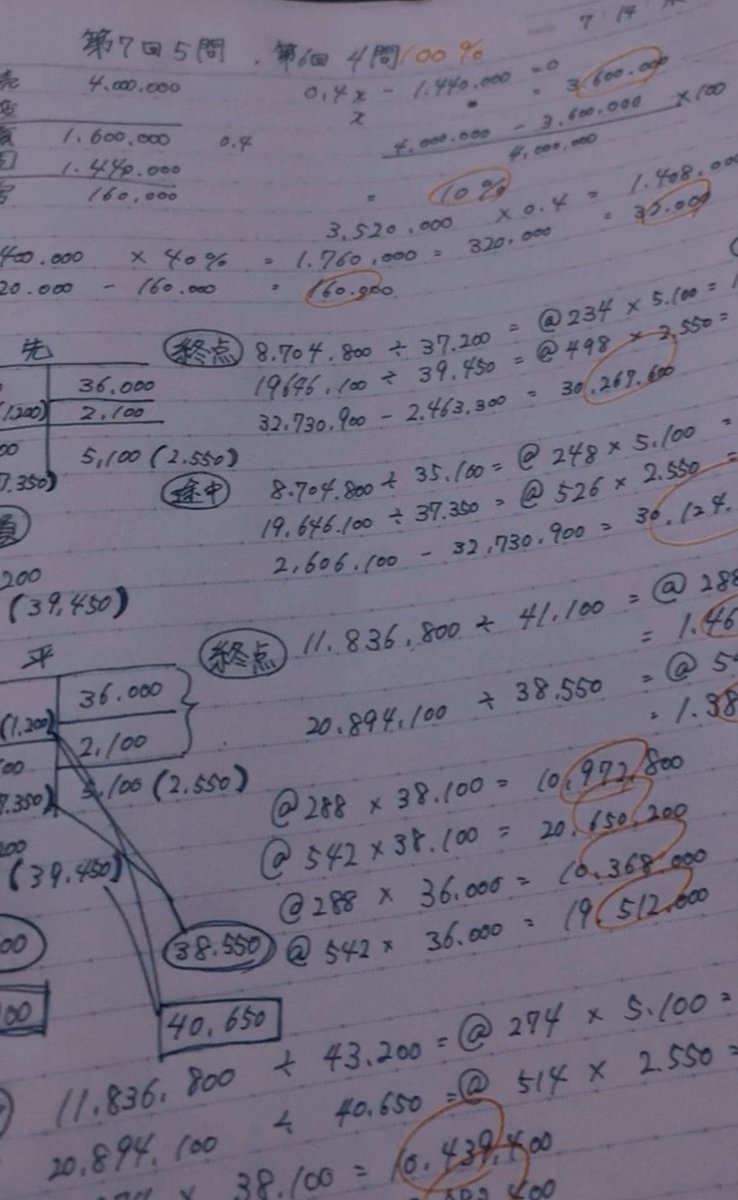 7 14
第7回5問 . 第6回 4問 100%
4.000.000
0.4x - 1.440.000 = 0
x = 3.600.000
1.600.000 0.4
4.000.000 - 3.600.000 ×100
4.000.000
1.440.000
160.000
= 10%
3,520.000 × 0.4 = 1.408.00
400.000 × 40% = 1.760.000 = 320.000 = 32.000
20.000 - 160.000 = 160.000
先
36.000
(1.200) 2,100
00 5,100 (2.550)
7.350)
200
(39,450)
終点 8.704.800 ÷ 37.200 = @234 × 5.100 =
19646.100 ÷ 39.450 = @498 × 2.550 =
32.730.900 - 2.463.300 = 30.267.600
途中 8.704.800 ÷ 35.100 = @248 × 5.100 =
19.646.100 ÷ 37.350 = @526 × 2.550 =
2,606.100 - 32.730.900 = 30.124.
平
36.000
(1,200) 2,100
00 5,100 (2.550)
7.350)
200
(39.450)
00
00
38.550
40,650
終点 11.836.800 ÷ 41.100 = @288
= 1.46
20.894.100 ÷ 38.550 = @54
= 1.38
@288 × 38.100 = 10.972.800
@542 × 38.100 = 20.650.200
@288 × 36.000 = 10.368.000
@542 × 36.000 = 19.512.000
11.836.800 ÷ 43.200 = @274 × 5.100 =
20.894.100 ÷ 40.650 = @514 × 2.550 =
× 38.100 = 10.439.400